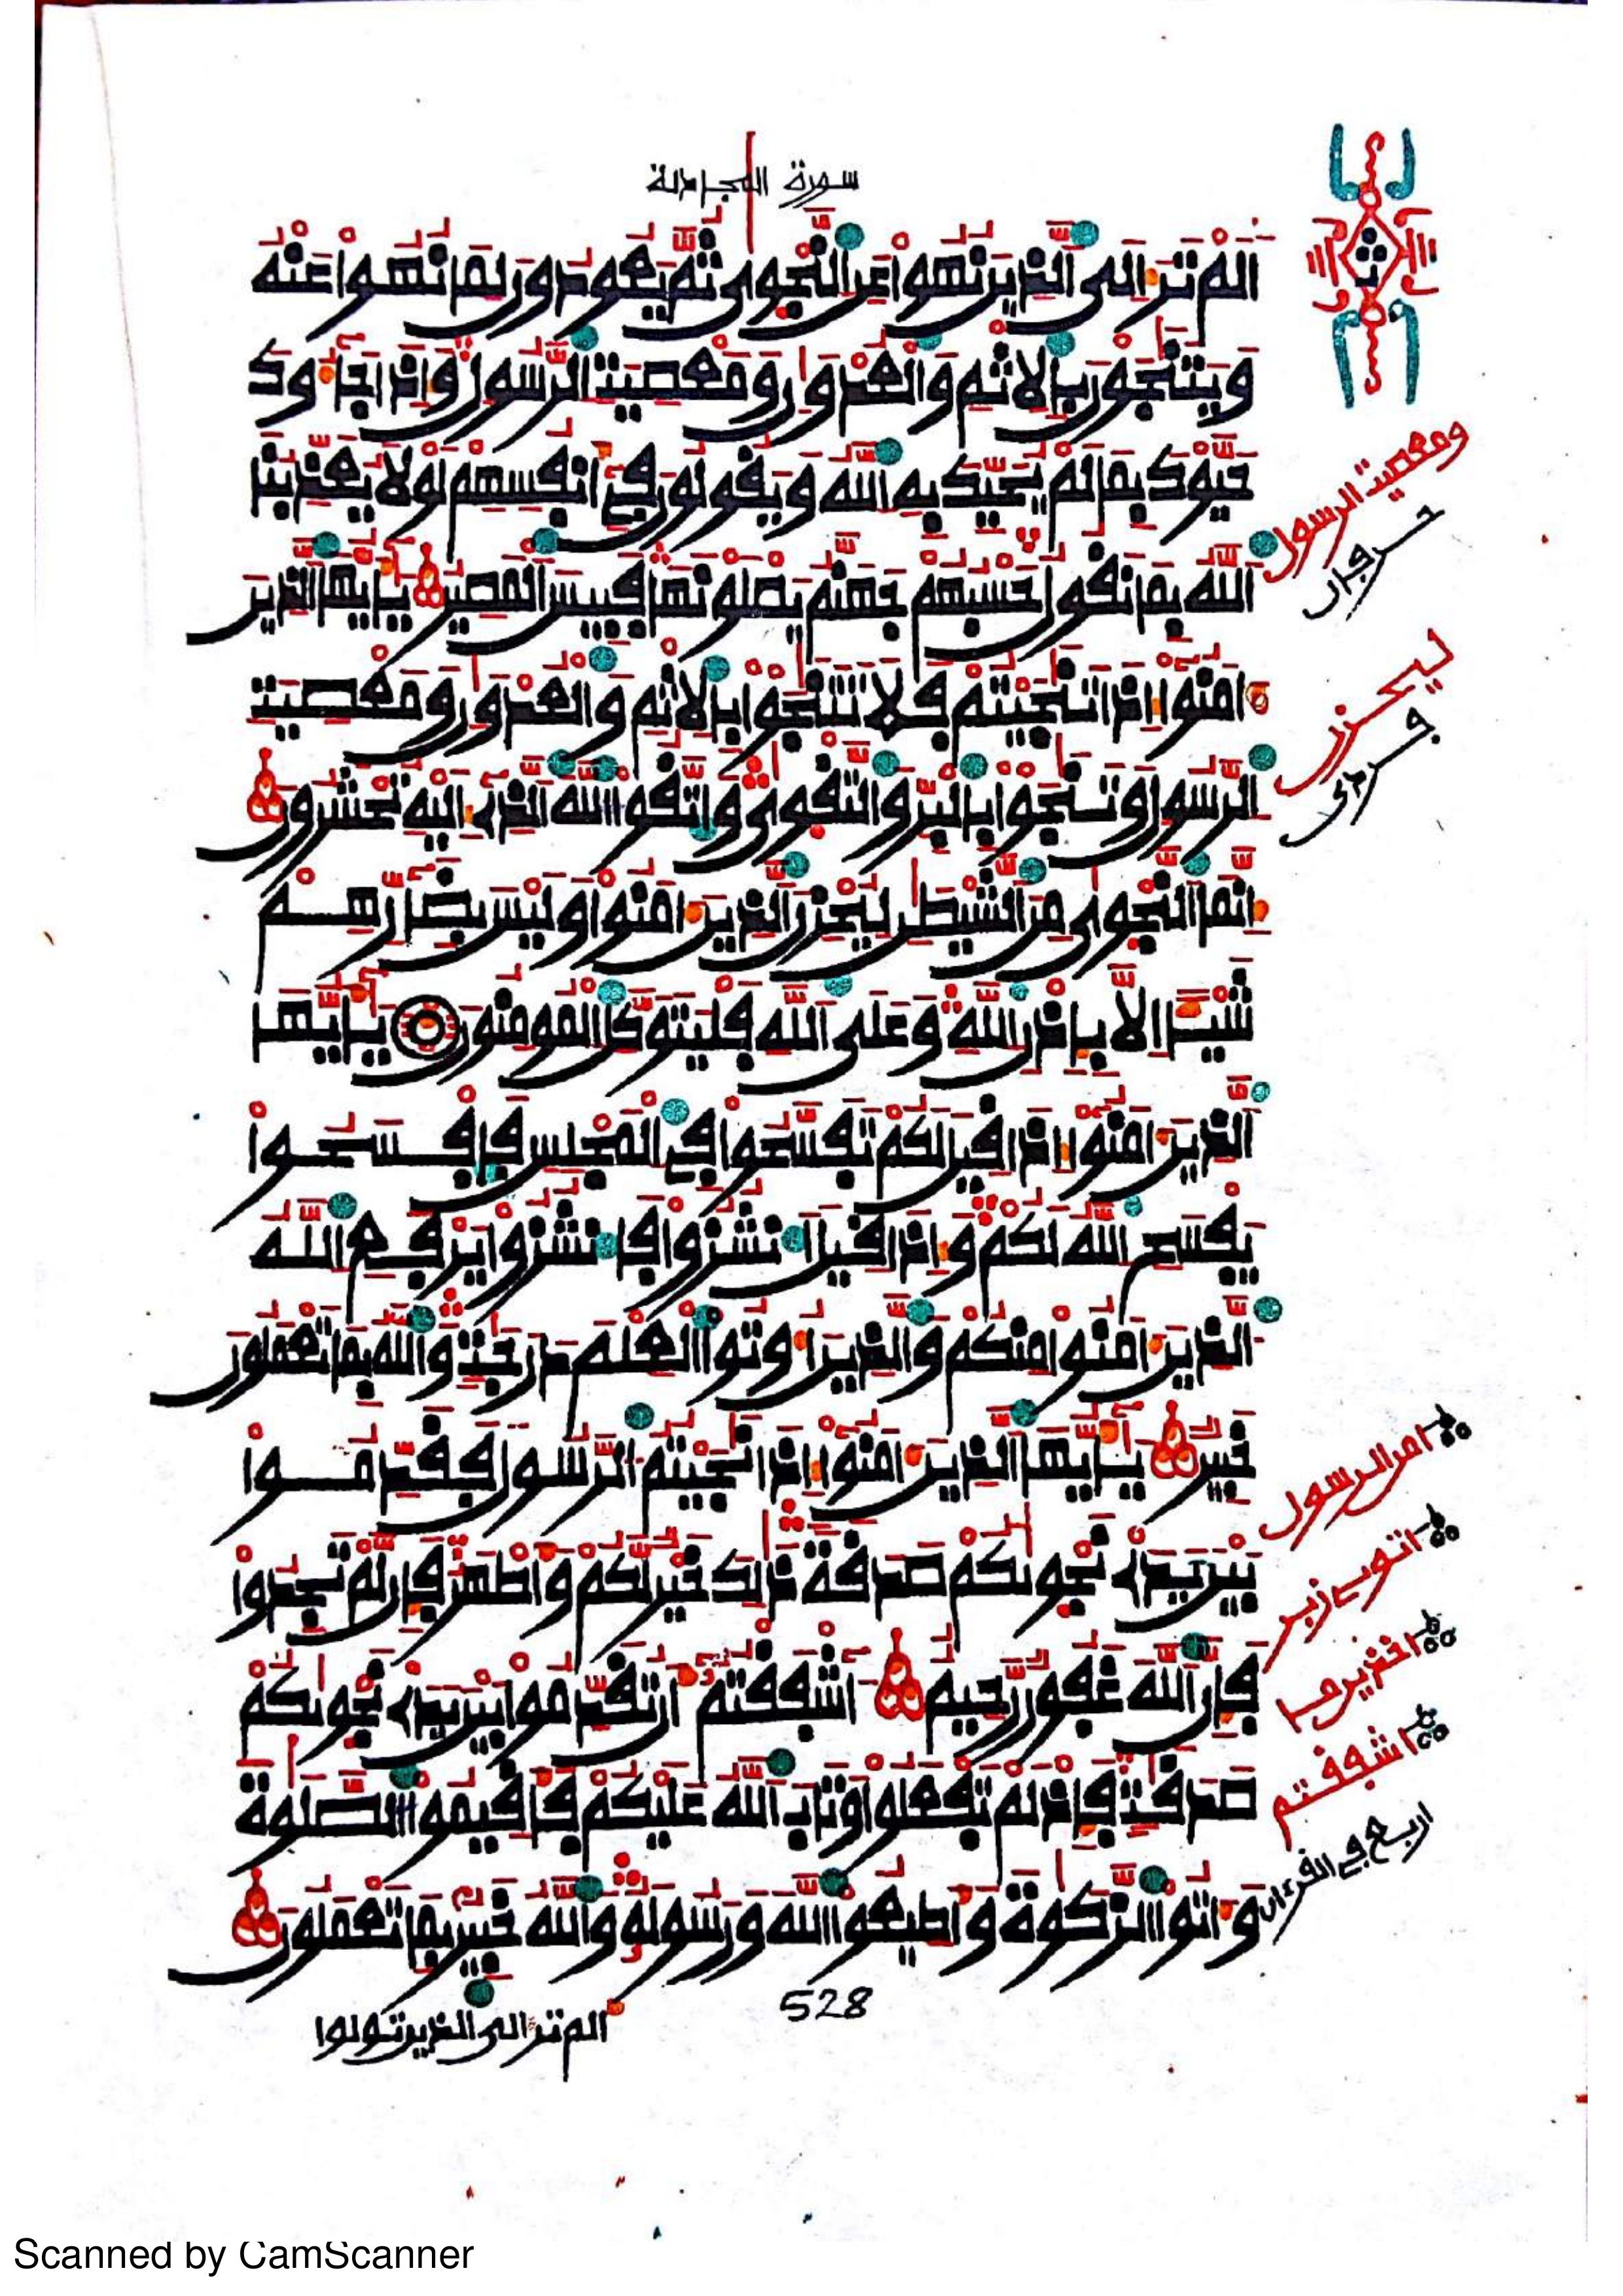 سورة المجادلة
اَلَمْ تَرَ إِلَى ٱلذِينَ نُهُواْ عَنِ ٱلنَّجْوٜىٰ ثُمَّ يَعُودُونَ لِمَا نُهُواْ عَنْهُ
وَيَتَنَٰجَوْنَ بِالِاثْمِ وَالْعُدْوَٰنِ وَمَعْصِيَتِ ٱلرَّسُولِ وَإِذَا جَآءُوكَ
حَيَّوْكَ بِمَا لَمْ يُحَيِّكَ بِهِ ٱللَّهُ وَيَقُولُونَ فِىٓ أَنفُسِهِمْ لَوْلَا يُعَذِّبُنَا
ٱللَّهُ بِمَا نَقُولُ حَسْبُهُمْ جَهَنَّمُ يَصْلَوْنَهَا فَبِيسَ ٱلْمَصِيرُ يَٰٓأَيُّهَا ٱلذِينَ
ءَامَنُوٓاْ إِذَا تَنَٰجَيْتُمْ فَلَا تَتَنَٰجَوْاْ بِالِاثْمِ وَالْعُدْوَٰنِ وَمَعْصِيَتِ
ٱلرَّسُولِ وَتَنَٰجَوْاْ بِالْبِرِّ وَالتَّقْوٜىٰ وَاتَّقُواْ ٱللَّهَ ٱلذِىٓ إِلَيْهِ تُحْشَرُونَ
إِنَّمَا ٱلنَّجْوٜىٰ مِنَ ٱلشَّيْطَٰنِ لِيُحْزِنَ ٱلذِينَ ءَامَنُواْ وَلَيْسَ بِضَآرِّهِمْ
شَيْـًٔا اِلَّا بِإِذْنِ ٱللَّهِ وَعَلَى ٱللَّهِ فَلْيَتَوَكَّلِ ٱلْمُومِنُونَ يَٰٓأَيُّهَا
ٱلذِينَ ءَامَنُوٓاْ إِذَا قِيلَ لَكُمْ تَفَسَّحُواْ فِى ٱلْمَجْلِسِ فَافْسَحُواْ
يَفْسَحِ ٱللَّهُ لَكُمْ وَإِذَا قِيلَ ٱنشُزُواْ فَانشُزُواْ يَرْفَعِ ٱللَّهُ
ٱلذِينَ ءَامَنُواْ مِنكُمْ وَالذِينَ أُوتُواْ ٱلْعِلْمَ دَرَجَٰتٍ وَاللَّهُ بِمَا تَعْمَلُونَ
خَبِيرٌ يَٰٓأَيُّهَا ٱلذِينَ ءَامَنُوٓاْ إِذَا نَٰجَيْتُمُ ٱلرَّسُولَ فَقَدِّمُواْ
بَيْنَ يَدَىْ نَجْوٜىٰكُمْ صَدَقَةً ذَٰلِكَ خَيْرٌ لَّكُمْ وَأَطْهَرُ فَإِن لَّمْ تَجِدُواْ
فَإِنَّ ٱللَّهَ غَفُورٌ رَّحِيمٌ ءَآشْفَقْتُمُۥٓ أَن تُقَدِّمُواْ بَيْنَ يَدَىْ نَجْوٜىٰكُمْ
صَدَقَٰتٍ فَإِذْ لَمْ تَفْعَلُواْ وَتَابَ ٱللَّهُ عَلَيْكُمْ فَأَقِيمُواْ ٱلصَّلَوٰةَ
وَءَاتُواْ ٱلزَّكَوٰةَ وَأَطِيعُواْ ٱللَّهَ وَرَسُولَهُۥ وَاللَّهُ خَبِيرٌ بِمَا تَعْمَلُونَ
528
الم تر الى الذين تولوا
ومعصيت الرسول
حرفان
ليحزن
امر الرسول
اشفقتم
اربع في القرءان
Scanned by CamScanner